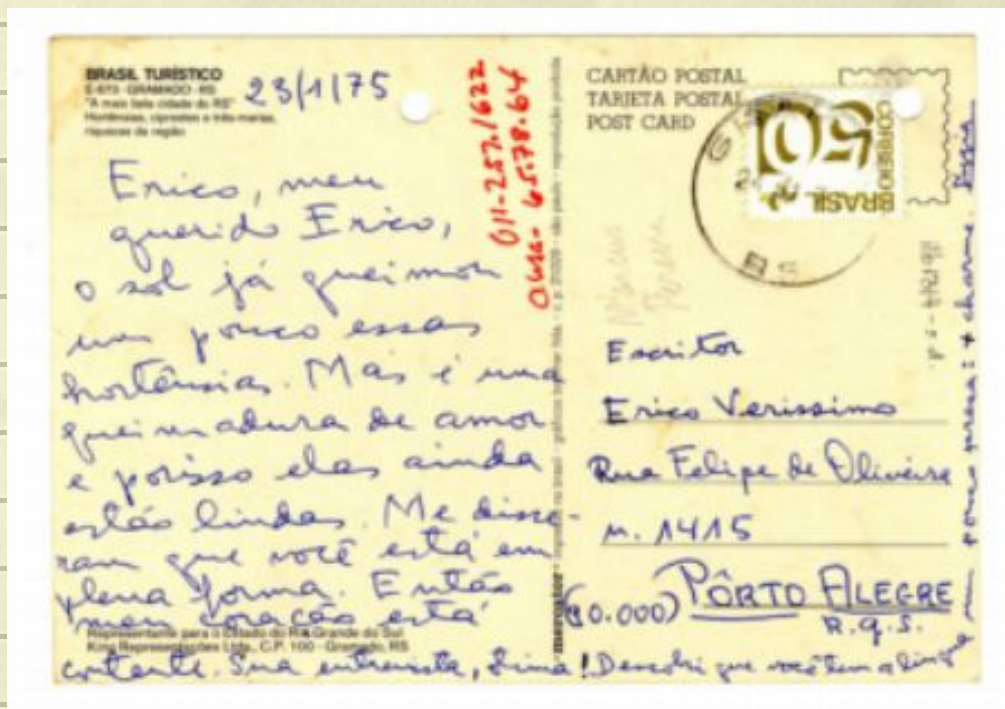 BRASIL TURÍSTICO
E-673 - GRAMADO - RS
"A mais bela cidade do RS"
Hortênsias, ciprestes e três-marias,
riquezas da região
23/1/75
Erico, meu
querido Erico,
o sol já queimou
um pouco essas
hortênsias. Mas é uma
queimadura de amor
e porisso elas ainda
estão lindas. Me disse-
ram que você está em
plena forma. Então
meu coração está
contente. Sua entrevista, ótima! Descobri que você tem a língua
um pouco presa: + charme.
Representante para o Estado do Rio Grande do Sul
King Representações Ltda., C.P. 100 - Gramado, RS
011-257.1622
65.78.64
mercator
CARTÃO POSTAL
TARJETA POSTAL
POST CARD
50
BRASIL 72
CORREIO
RS
Escritor
Erico Verissimo
Rua Felipe de Oliveira
n. 1415
(90.000) PÔRTO ALEGRE
R.G.S.